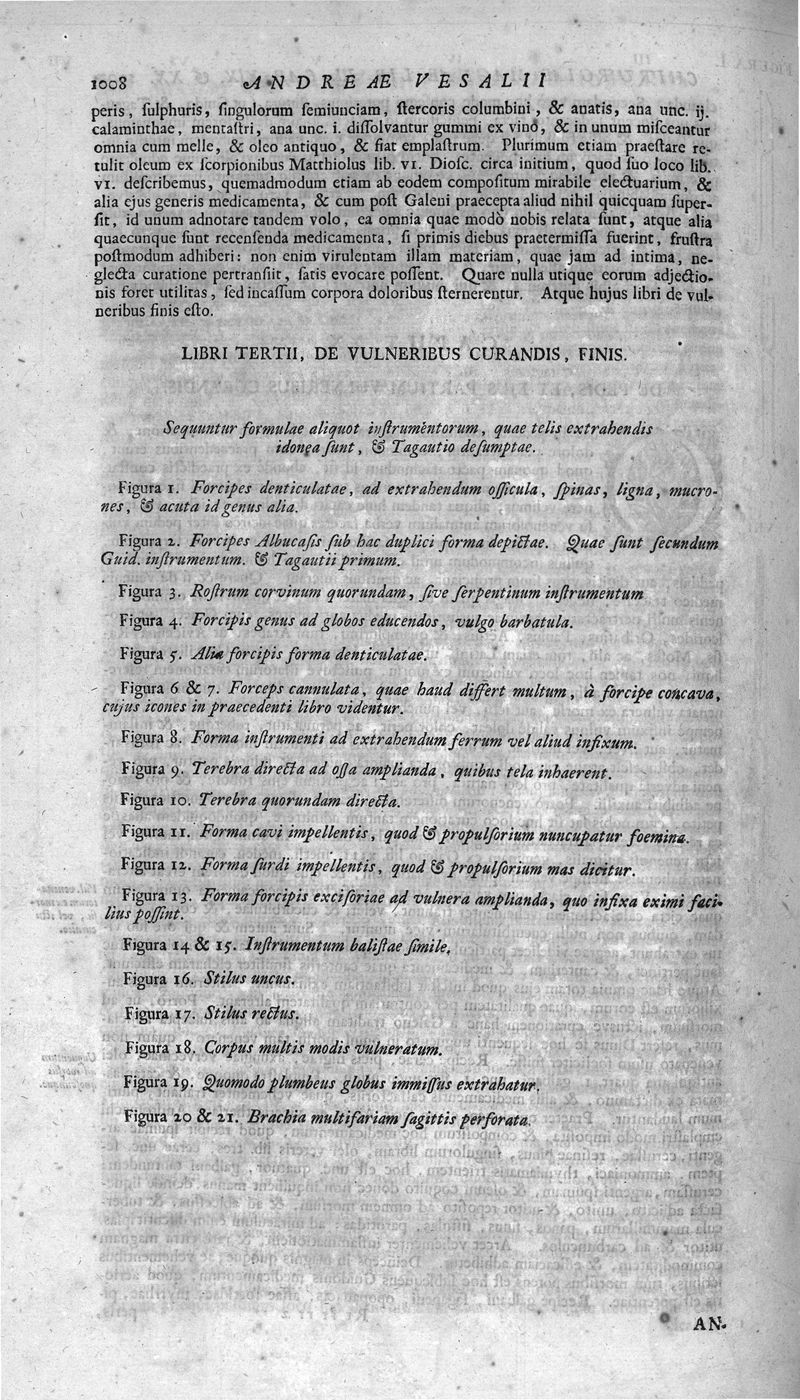 1008 ANDREAE VESALII
peris, ſulphuris, ſingulorum ſemiunciam, ſtercoris columbini, & anatis, ana unc. ij.
calaminthae, mentaſtri, ana unc. i. diſſolvantur gummi ex vino, & in unum miſceantur
omnia cum melle, & oleo antiquo, & fiat emplaſtrum. Plurimum etiam praeſtare re-
tulit oleum ex ſcorpionibus Matthiolus lib. VI. Dioſc. circa initium, quod ſuo loco lib.
VI. deſcribemus, quemadmodum etiam ab eodem compoſitum mirabile electuarium, &
alia ejus generis medicamenta, & cum poſt Galeni praecepta aliud nihil quicquam ſuper-
ſit, id unum adnotare tandem volo, ea omnia quae modò nobis relata ſunt, atque alia
quaecunque ſunt recenſenda medicamenta, ſi primis diebus praetermiſſa fuerint, fruſtra
poſtmodum adhiberi: non enim virulentam illam materiam, quae jam ad intima, ne-
glecta curatione pertranſiit, ſatis evocare poſſent. Quare nulla utique eorum adjectio-
nis foret utilitas, ſed incaſſum corpora doloribus ſternerentur. Atque hujus libri de vul-
neribus finis eſto.
LIBRI TERTII, DE VULNERIBUS CURANDIS, FINIS.
Sequuntur formulae aliquot inſtrumentorum, quae telis extrahendis
idonea ſunt, & Tagautio deſumptae.
Figura 1. Forcipes denticulatae, ad extrahendum oſſicula, ſpinas, ligna, mucro-
nes, & acuta id genus alia.
Figura 2. Forcipes Albucaſis ſub hac duplici forma depictae. Quae ſunt ſecundum
Guid. inſtrumentum. & Tagautii primum.
Figura 3. Roſtrum corvinum quorundam, ſive ſerpentinum inſtrumentum
Figura 4. Forcipis genus ad globos educendos, vulgo barbatula.
Figura 5. Alia forcipis forma denticulatae.
Figura 6 & 7. Forceps cannulata, quae haud differt multum, à forcipe concava,
cujus icones in praecedenti libro videntur.
Figura 8. Forma inſtrumenti ad extrahendum ferrum vel aliud infixum.
Figura 9. Terebra directa ad oſſa amplianda, quibus tela inhaerent.
Figura 10. Terebra quorundam directa.
Figura 11. Forma cavi impellentis, quod & propulſorium nuncupatur foemina.
Figura 12. Forma ſurdi impellentis, quod & propulſorium mas dicitur.
Figura 13. Forma forcipis exciſoriae ad vulnera amplianda, quo infixa eximi faci-
lius poſſint.
Figura 14 & 15. Inſtrumentum baliſtae ſimile.
Figura 16. Stilus uncus.
Figura 17. Stilus rectus.
Figura 18. Corpus multis modis vulneratum.
Figura 19. Quomodo plumbeus globus immiſſus extrahatur.
Figura 20 & 21. Brachia multifariam ſagittis perforata.
AN-